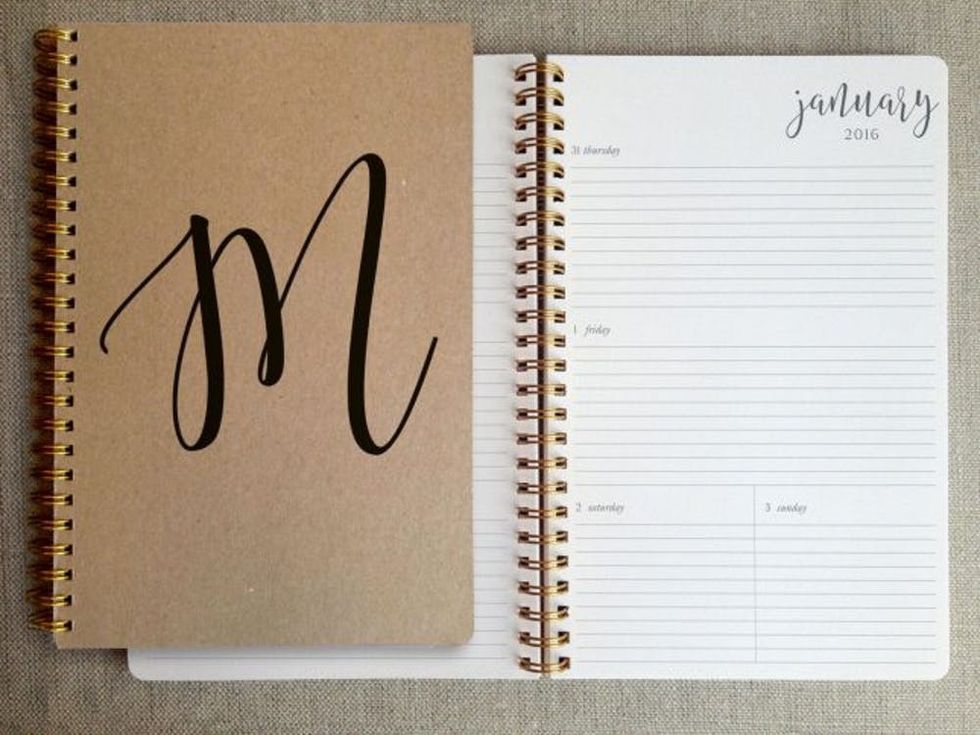 M
january
2016
31 thursday
1 friday
2 saturday
3 sunday